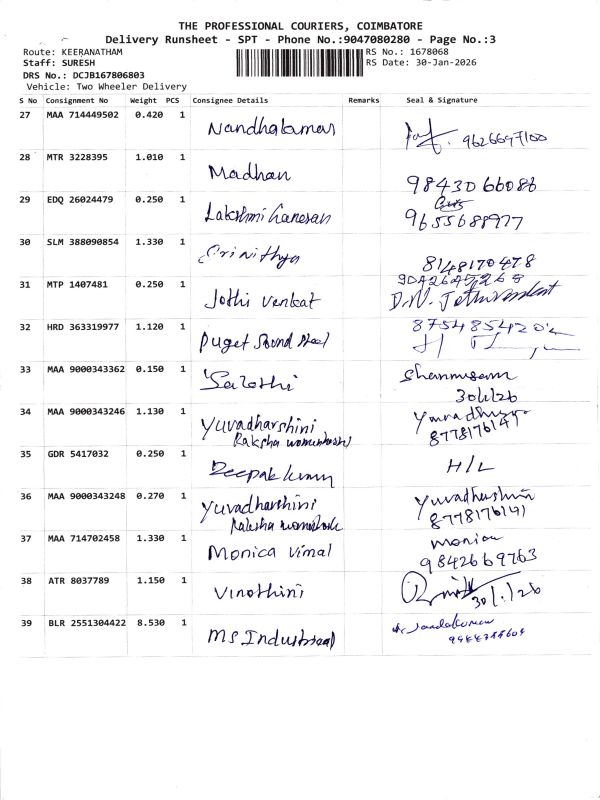 THE PROFESSIONAL COURIERS, COIMBATORE
Delivery Runsheet - SPT - Phone No.:9047080280 - Page No.:3
Route: KEERANATHAM
RS No.: 1678068
Staff: SURESH
RS Date: 30-Jan-2026
DRS No.: DCJB167806803
Vehicle: Two Wheeler Delivery
S No Consignment No Weight PCS Consignee Details Remarks Seal & Signature
27 MAA 714449502 0.420 1 Nandhakumar
9626697100
28 MTR 3228395 1.010 1 Madhan
9843066086
29 EDQ 26024479 0.250 1 Lakshmi Ganesan
9655688977
30 SLM 388090854 1.330 1 Srinithya
8148170478
31 MTP 1407481 0.250 1 Jothi Venkat
32 HRD 363319977 1.120 1 Puget Sound Steel
33 MAA 9000343362 0.150 1
Shanmugam
30/1/26
34 MAA 9000343246 1.130 1 Yuvadharshini
Raksha
8778176141
35 GDR 5417032 0.250 1 Deepak
H/L
36 MAA 9000343248 0.270 1 Yuvadharshini
Raksha
8778176141
37 MAA 714702458 1.330 1 Monica Vimal
9842669763
38 ATR 8037789 1.150 1 Vinothini
30/1/26
39 BLR 2551304422 8.530 1 MS Industrial